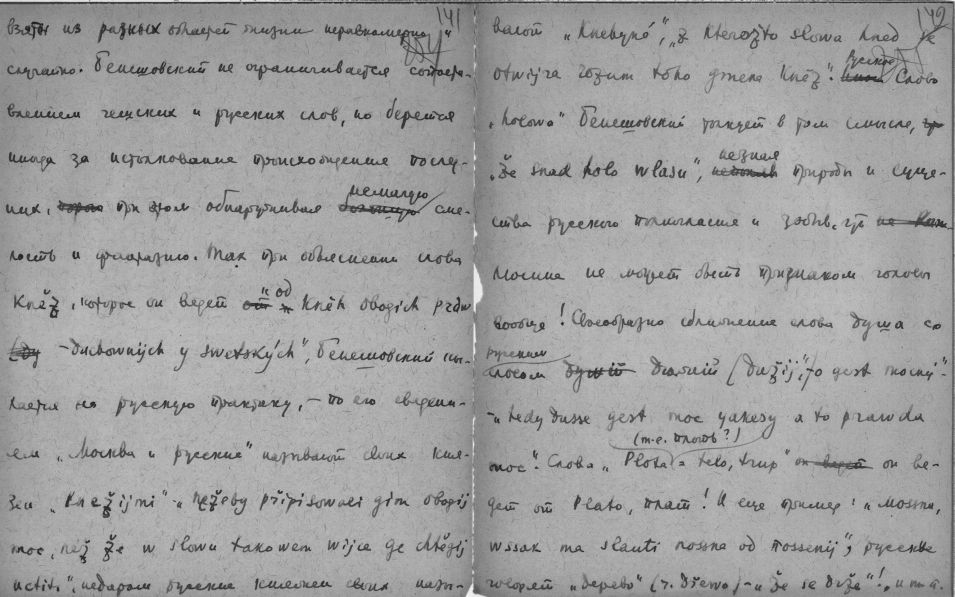 141
взяты из разных областей жизни неравномерно и
случайно. Бенешовский не ограничивается сопоста-
влением чешских и русских слов, но берется
иногда за истолкование происхождения послед-
них, при этом обнаруживая немалую сме-
лость и фантазию. Так при объяснении слова
Kněz, которое он ведет "od Kněh obogich práw
- duchownijch y swetských", Бенешовский ссы-
лается на русскую практику, — по его сведени-
ям "Москва и русские" называют своих кня-
зей "Kněžijmi" - "nežeby připisowali gim obogij
moc, než že w slowu takowem wijce ge chtěgij
uctiti", недаром русские княгини своих назы-
142
вают "Knehyně", "z kteréžto slowa hned se
otwijra rozum toho gmena Kněz". Русское слово
"holowa" Бенешовский толкует в том смысле,
"že snad holo wlasu", не зная природы и суще-
ства русского полногласия и забыв, что
лосина не может быть признаком головы
вообще! Своеобразно сближение слова душа со
русским словом дюжий (dužij, "to gest mocný" -
- "tedy dusse gest moc yakasy a to prawda
(т.е. плоть?)
moc". Слова "Plota = telo, trup" он ве-
дет от Plato, плат! И еще пример: "Mossna,
wssak ma slauti nossna od nossenij"; русские
говорят "дерево" (ч. dřewo) - "že se dře"! и т.д.